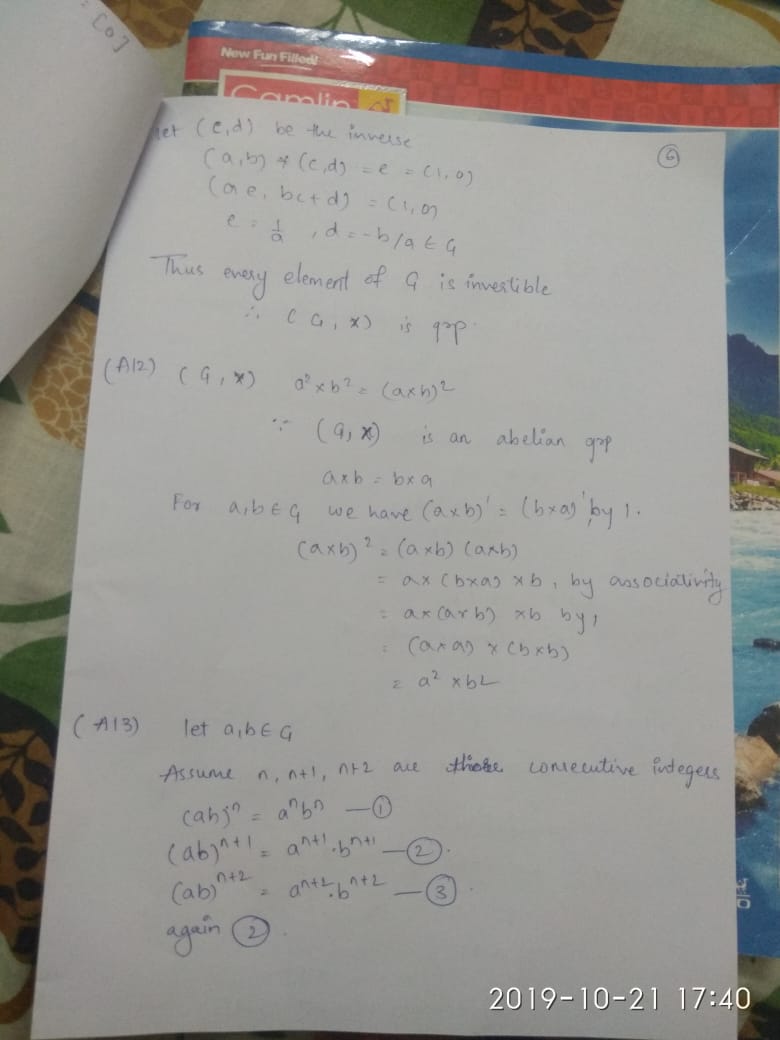 = [0]
New Fun Filled!
Camlin
6
let (c,d) be the inverse
(a,b) * (c,d) = e = (1,0)
(ac, bc+d) = (1,0)
c = 1/a , d = -b/a ∈ G
Thus every element of G is invertible
∴ (G, *) is grp.
(A12) (G, *) a² * b² = (a*b)²
∵ (G, *) is an abelian grp
a*b = b*a
For a,b ∈ G we have (a*b)' = (b*a)' by 1.
(a*b)² = (a*b) (a*b)
= a* (b*a) *b, by associativity
= a* (a*b) *b by 1
= (a*a) * (b*b)
= a² * b²
(A13) let a,b ∈ G
Assume n, n+1, n+2 are three consecutive integers
(ab)ⁿ = aⁿbⁿ — ①
(ab)ⁿ⁺¹ = aⁿ⁺¹.bⁿ⁺¹ — ②.
(ab)ⁿ⁺² = aⁿ⁺².bⁿ⁺² — ③.
again ②.
2019-10-21 17:40